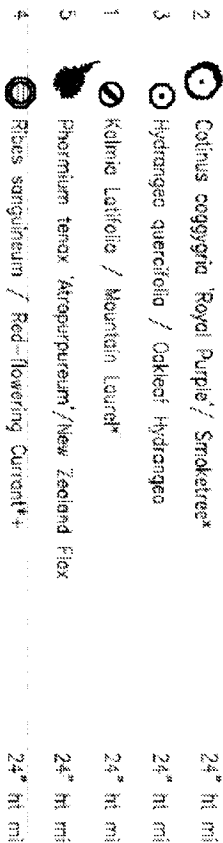 2 Cotinus coggygria 'Royal Purple'/ Smoketree* 24" ht mi
3 Hydrangea quercifolia / Oakleaf Hydrangea 24" ht mi
1 Kalmia Latifolia / Mountain Laurel* 24" ht mi
5 Phormium tenax 'Atropurpureum'/New Zealand Flax 24" ht mi
4 Ribes sanguineum / Red-flowering Currant*+ 24" ht mi